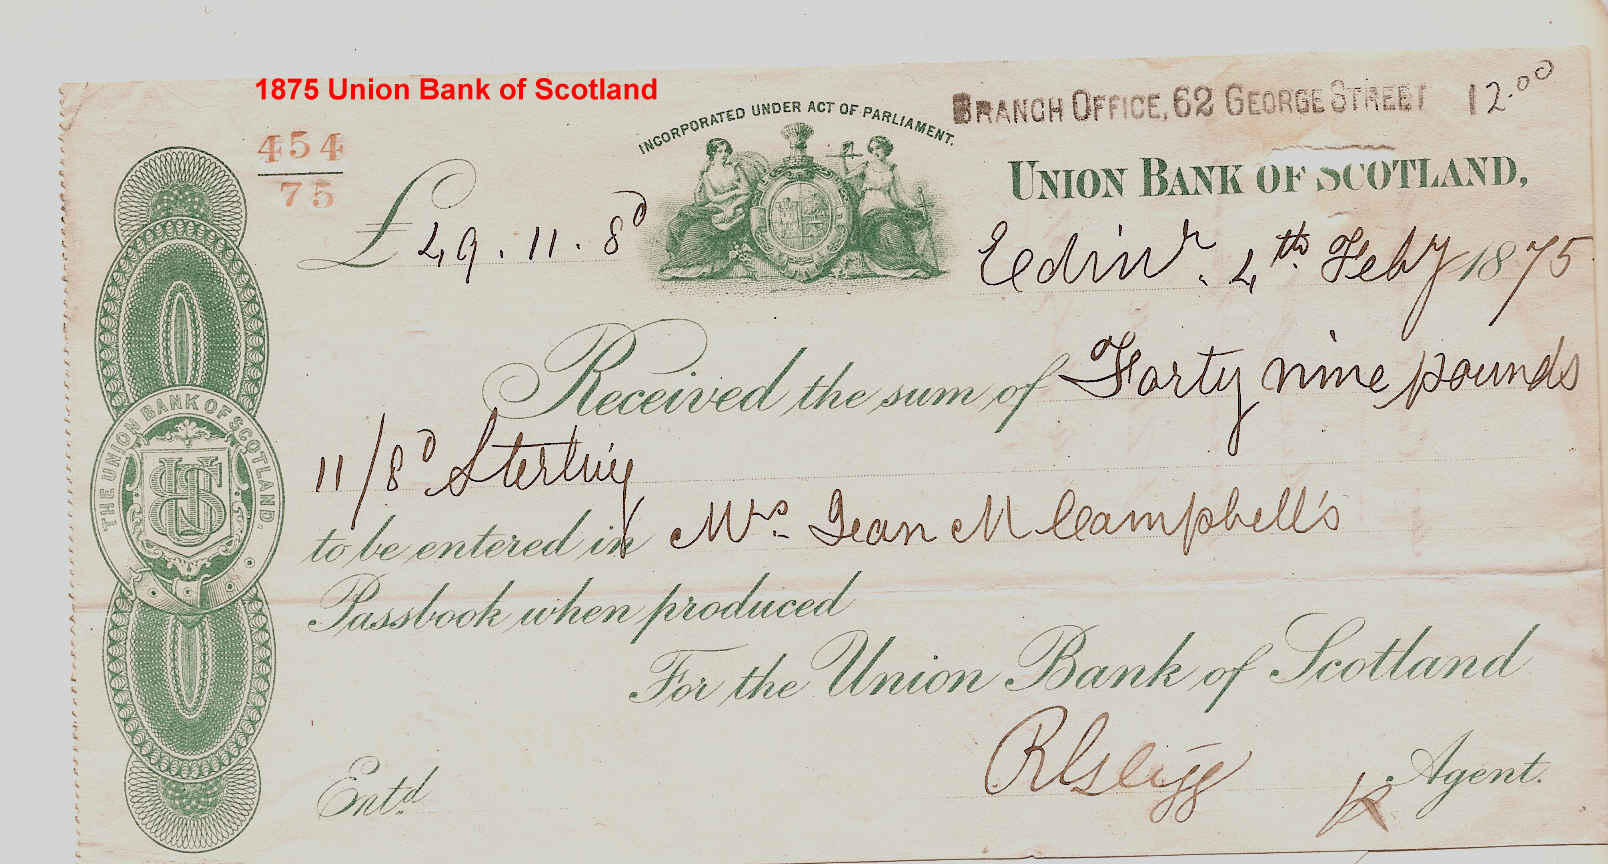 1875 Union Bank of Scotland
BRANCH OFFICE, 62 GEORGE STREET 12.00
INCORPORATED UNDER ACT OF PARLIAMENT.
454
75
UNION BANK OF SCOTLAND,
£ 49. 11. 8d
Edinr. 4th Feby 1875
Received the sum of Forty nine pounds
11/8d Sterling
THE UNION BANK OF SCOTLAND.
to be entered in Mrs. Jean M Campbell's
Passbook when produced
For the Union Bank of Scotland
Agent.
Entd.